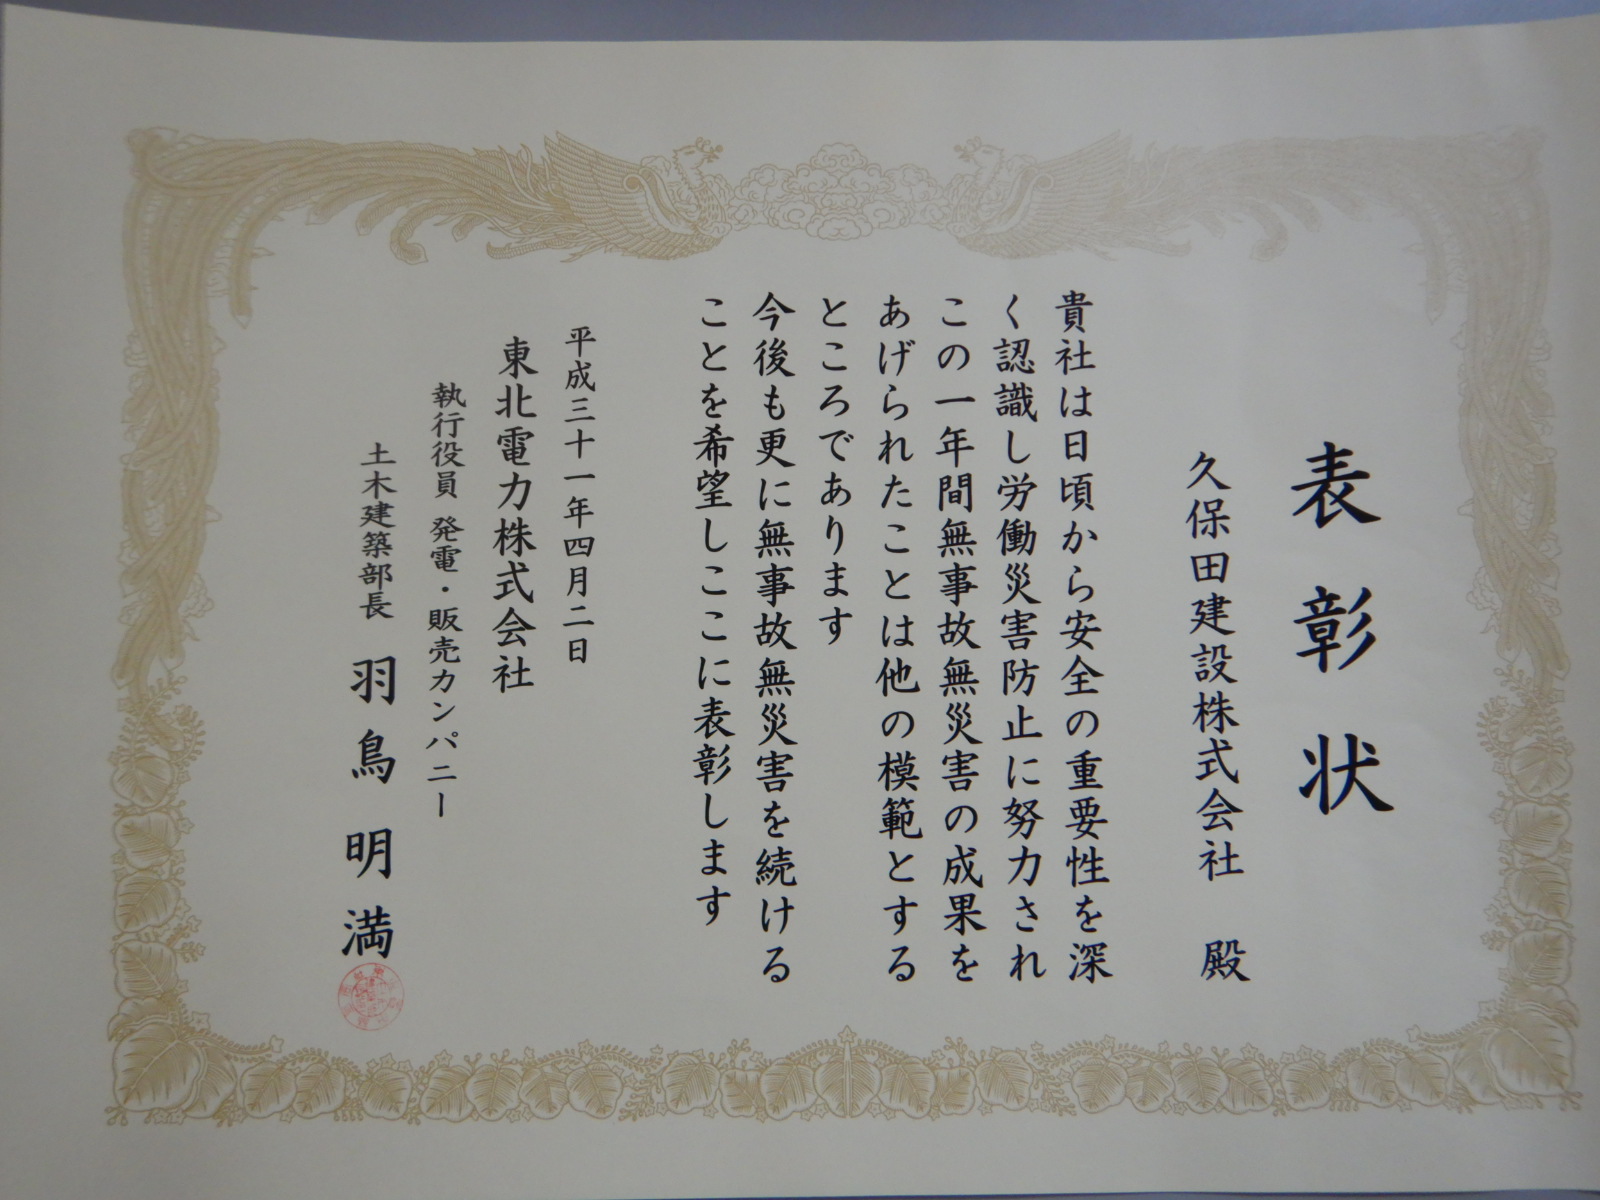 表彰状
久保田建設株式会社 殿
貴社は日頃から安全の重要性を深
く認識し労働災害防止に努力され
この一年間無事故無災害の成果を
あげられたことは他の模範とする
ところであります
今後も更に無事故無災害を続ける
ことを希望しここに表彰します
平成三十一年四月二日
東北電力株式会社
執行役員 発電・販売カンパニー
土木建築部長 羽鳥明満